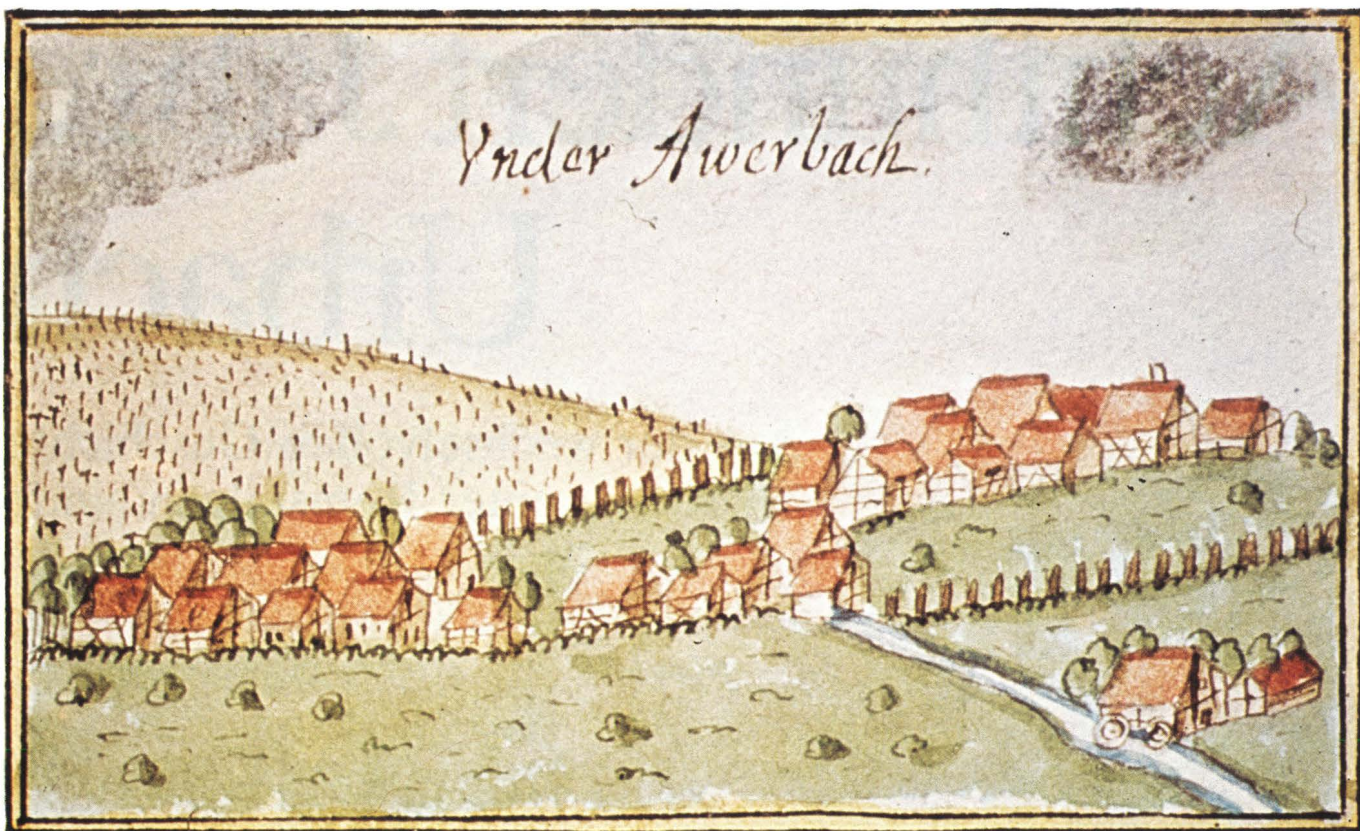 Ynder Awerbach.